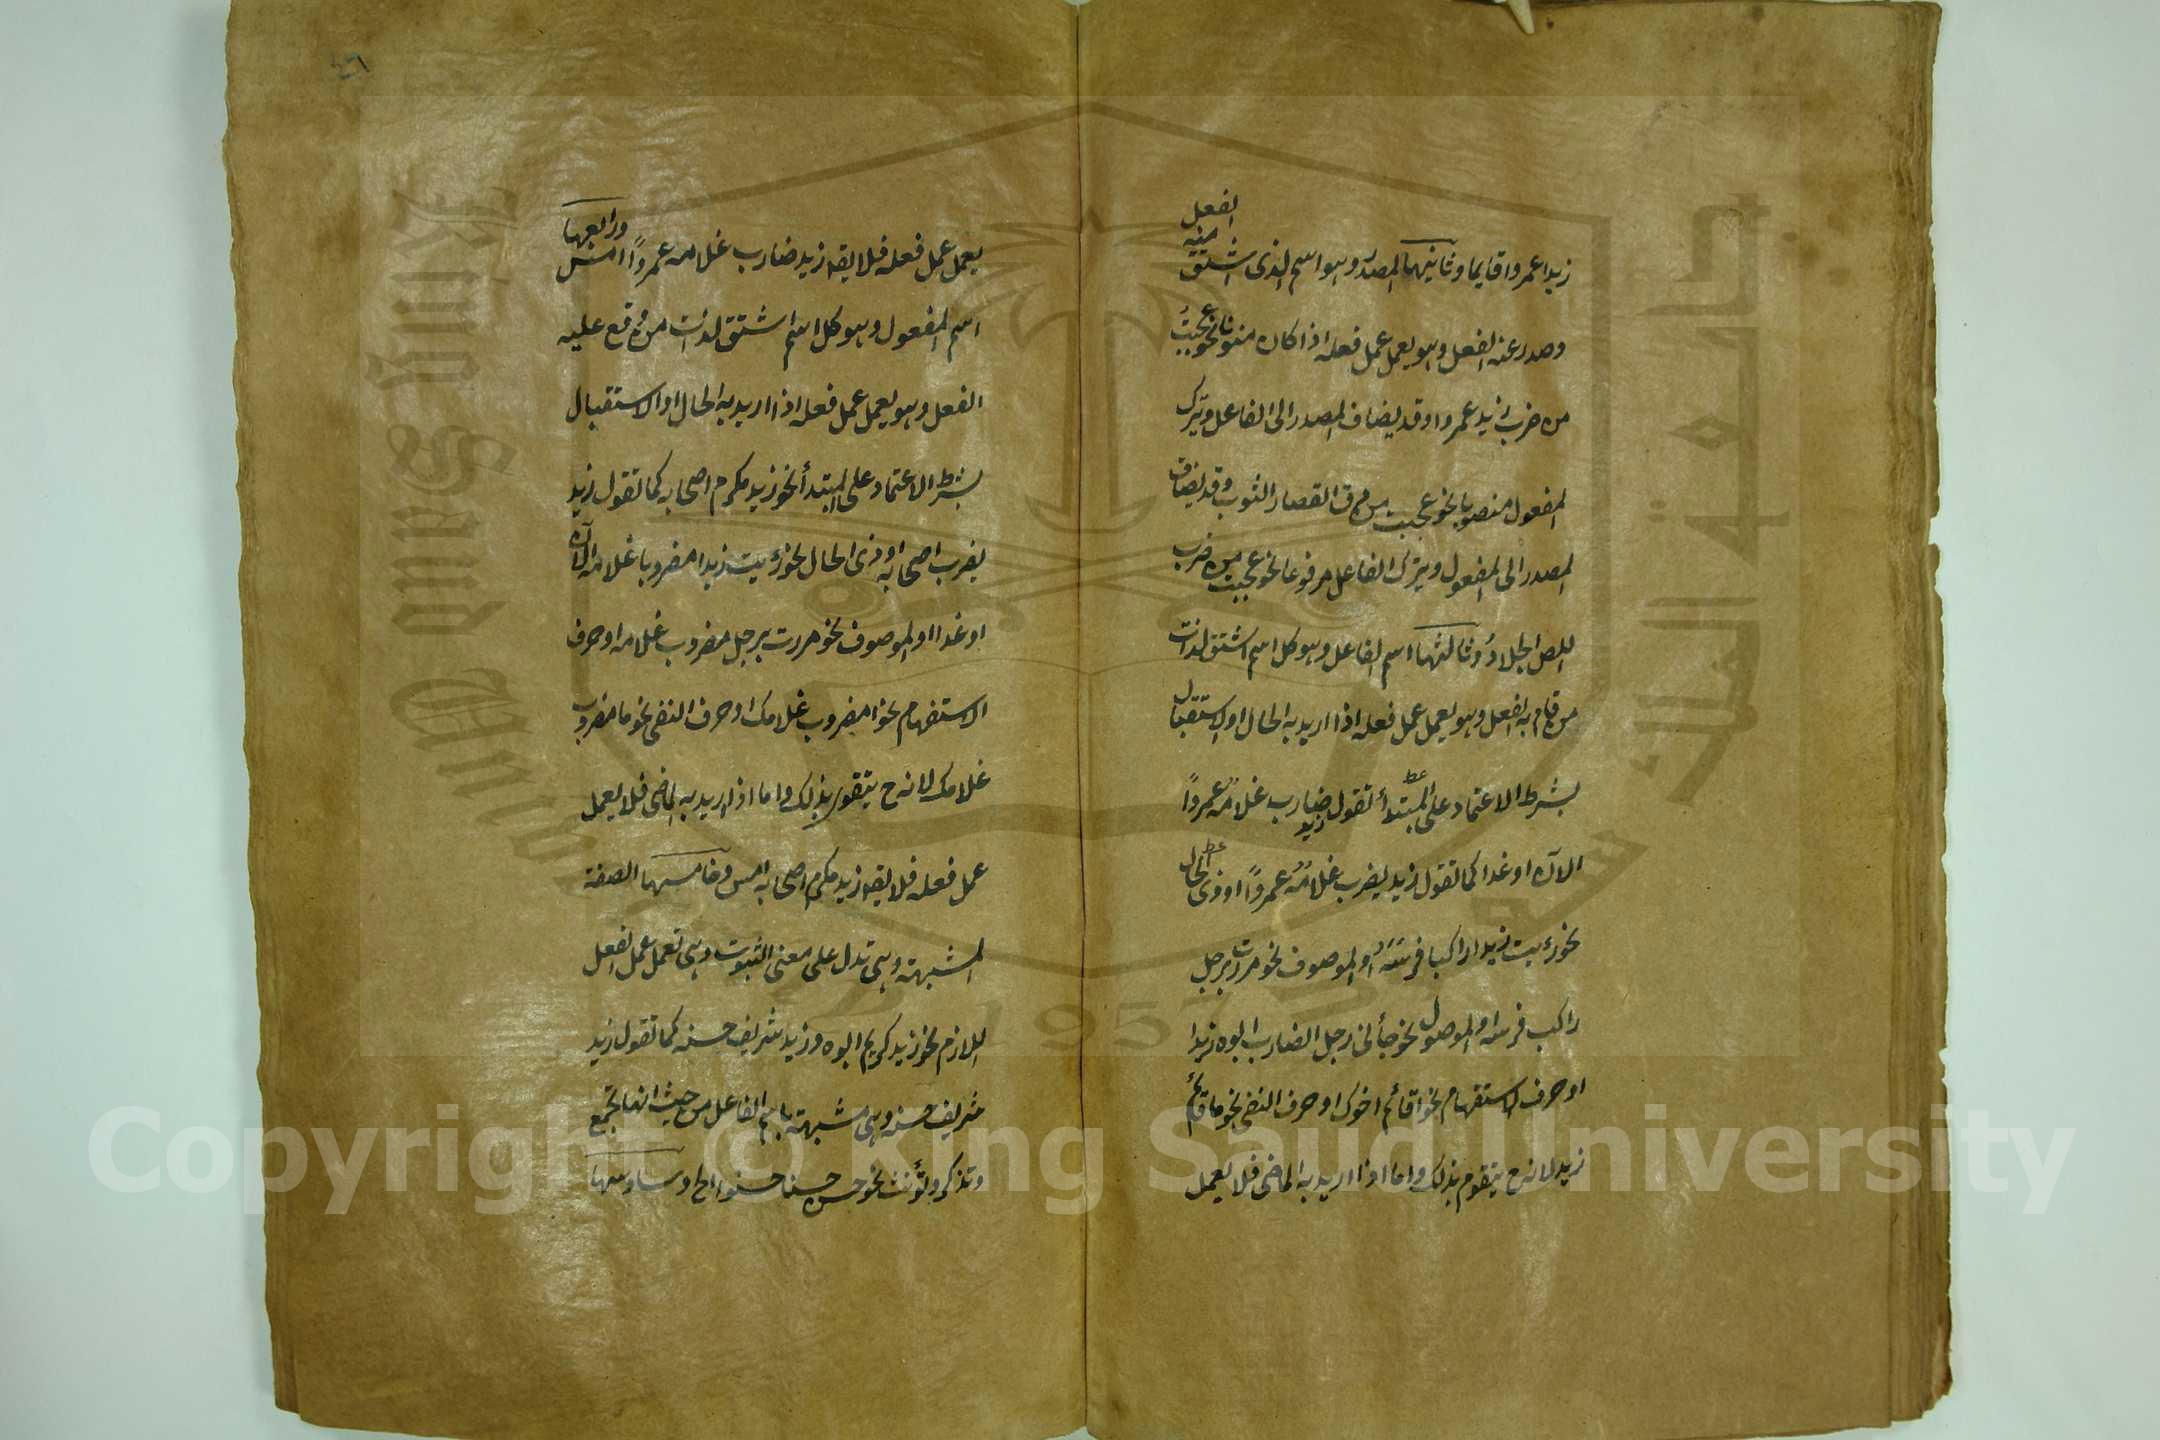 زيدا عمروا قايما وثانيها المصدر وهو اسم الذى اشتق منه الفعل
وصدر عنه الفعل وهو يعمل عمل فعله اذا كان منونا نحو عجبت
من ضرب زيد عمروا وقد يضاف المصدر الى الفاعل ويترك
المفعول منصوبا نحو عجبت من دق القصار الثوب وقد يضاف
المصدر الى المفعول ويترك الفاعل مرفوعا نحو عجبت من ضرب
اللص الجلادُ وثالثها اسم الفاعل وهو كل اسم اشتق لذات
من قام به الفعل وهو يعمل عمل فعله اذا اريد به الحال او الاستقبال
بشرط الاعتماد على المبتدأ تقول زيد ضارب غلامُهُ عمرواً
الآن او غدا كما تقول زيد يضرب غلامُهُ عمرواً او ذى الحال
نحو رءيت زيدا راكبا فرسَهُ او الموصوف نحو مررت برجل
راكب فرسه او الموصول نحو جأنى رجل الضارب ابوه زيدا
او حرف الاستفهام نحو اقائم اخوك او حرف النفى نحو ما قائم
زيد لانه ح يتقوم بذلك واما اذا اريد به الماضى فلا يعمل
٤٦
يعمل عمل فعله فلا يقه زيد ضارب غلامه عمرواً امس ورابعها
اسم المفعول وهو كل اسم اشتق لذات من وقع عليه
الفعل وهو يعمل عمل فعله اذا اريد به الحال او الاستقبال
بشرط الاعتماد على المبتدأ نحو زيد مكرم اصحابه كما تقول زيد
يضرب اصحابه او ذى الحال نحو رءيت زيدا مضروبا غلامه الآن
او غدا او الموصوف نحو مررت برجل مضروب غلامه او حرف
الاستفهام نحو امضروب غلامك او حرف النفى نحو ما مضروب
غلامك لانه ح يتقوى بذلك واما اذا اريد به الماضى فلا يعمل
عمل فعله فلا يقه زيد مكرم اصحابه امس وخامسها الصفة
المشبهة وهى تدل على معنى الثبوت وهى تعمل عمل الفعل
اللازم نحو زيد كريم ابوه وزيد شريف حسنه كما تقول زيد
شريف حسنه وهى مشبهة باسم الفاعل من حيث انها تجمع
وتذكر وتؤنث نحو حسن حسنا حسنوا الخ وسادسها
Copyright © King Saud University
King Saud University
جامعة الملك سعود
1957